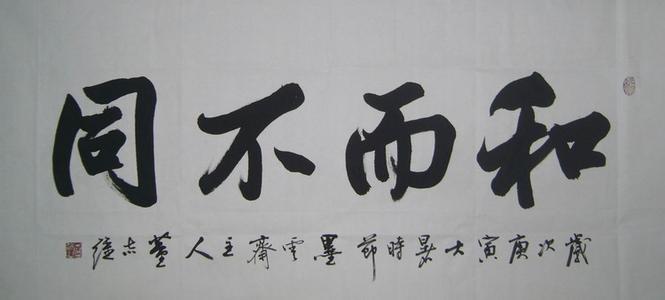 和而不同
歲次庚寅大暑時節墨雲齋主人董志遠